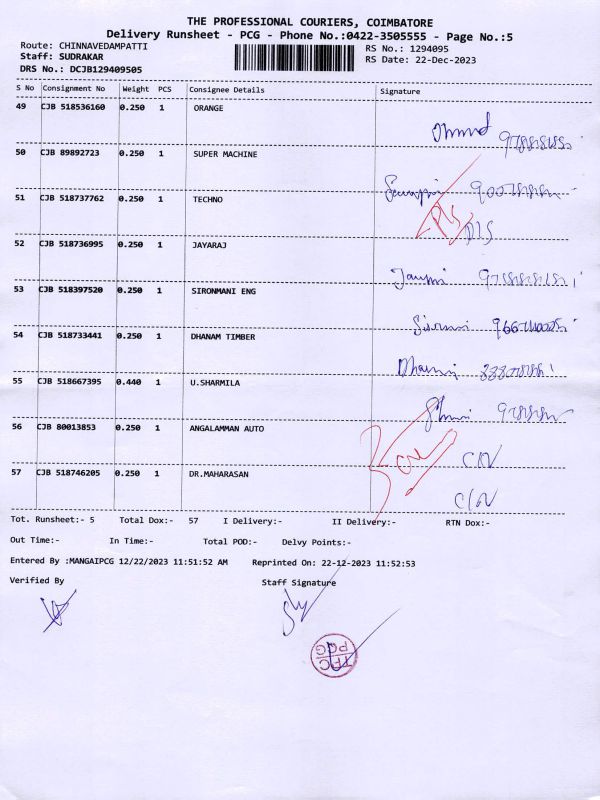 THE PROFESSIONAL COURIERS, COIMBATORE
Delivery Runsheet - PCG - Phone No.:0422-3505555 - Page No.:5
Route: CHINNAVEDAMPATTI RS No.: 1294095
Staff: SUDRAKAR RS Date: 22-Dec-2023
DRS No.: DCJB129409505
S No Consignment No Weight PCS Consignee Details Signature
49 CJB 518536160 0.250 1 ORANGE
50 CJB 89892723 0.250 1 SUPER MACHINE
51 CJB 518737762 0.250 1 TECHNO
D/S D/S
52 CJB 518736995 0.250 1 JAYARAJ
53 CJB 518397520 0.250 1 SIRONMANI ENG
54 CJB 518733441 0.250 1 DHANAM TIMBER
55 CJB 518667395 0.440 1 U.SHARMILA
56 CJB 80013853 0.250 1 ANGALAMMAN AUTO
57 CJB 518746205 0.250 1 DR.MAHARASAN
Tot. Runsheet:- 5 Total Dox:- 57 I Delivery:- II Delivery:- RTN Dox:-
Out Time:- In Time:- Total POD:- Delvy Points:-
Entered By :MANGAIPCG 12/22/2023 11:51:52 AM Reprinted On: 22-12-2023 11:52:53
Verified By Staff Signature
TPC
PCG